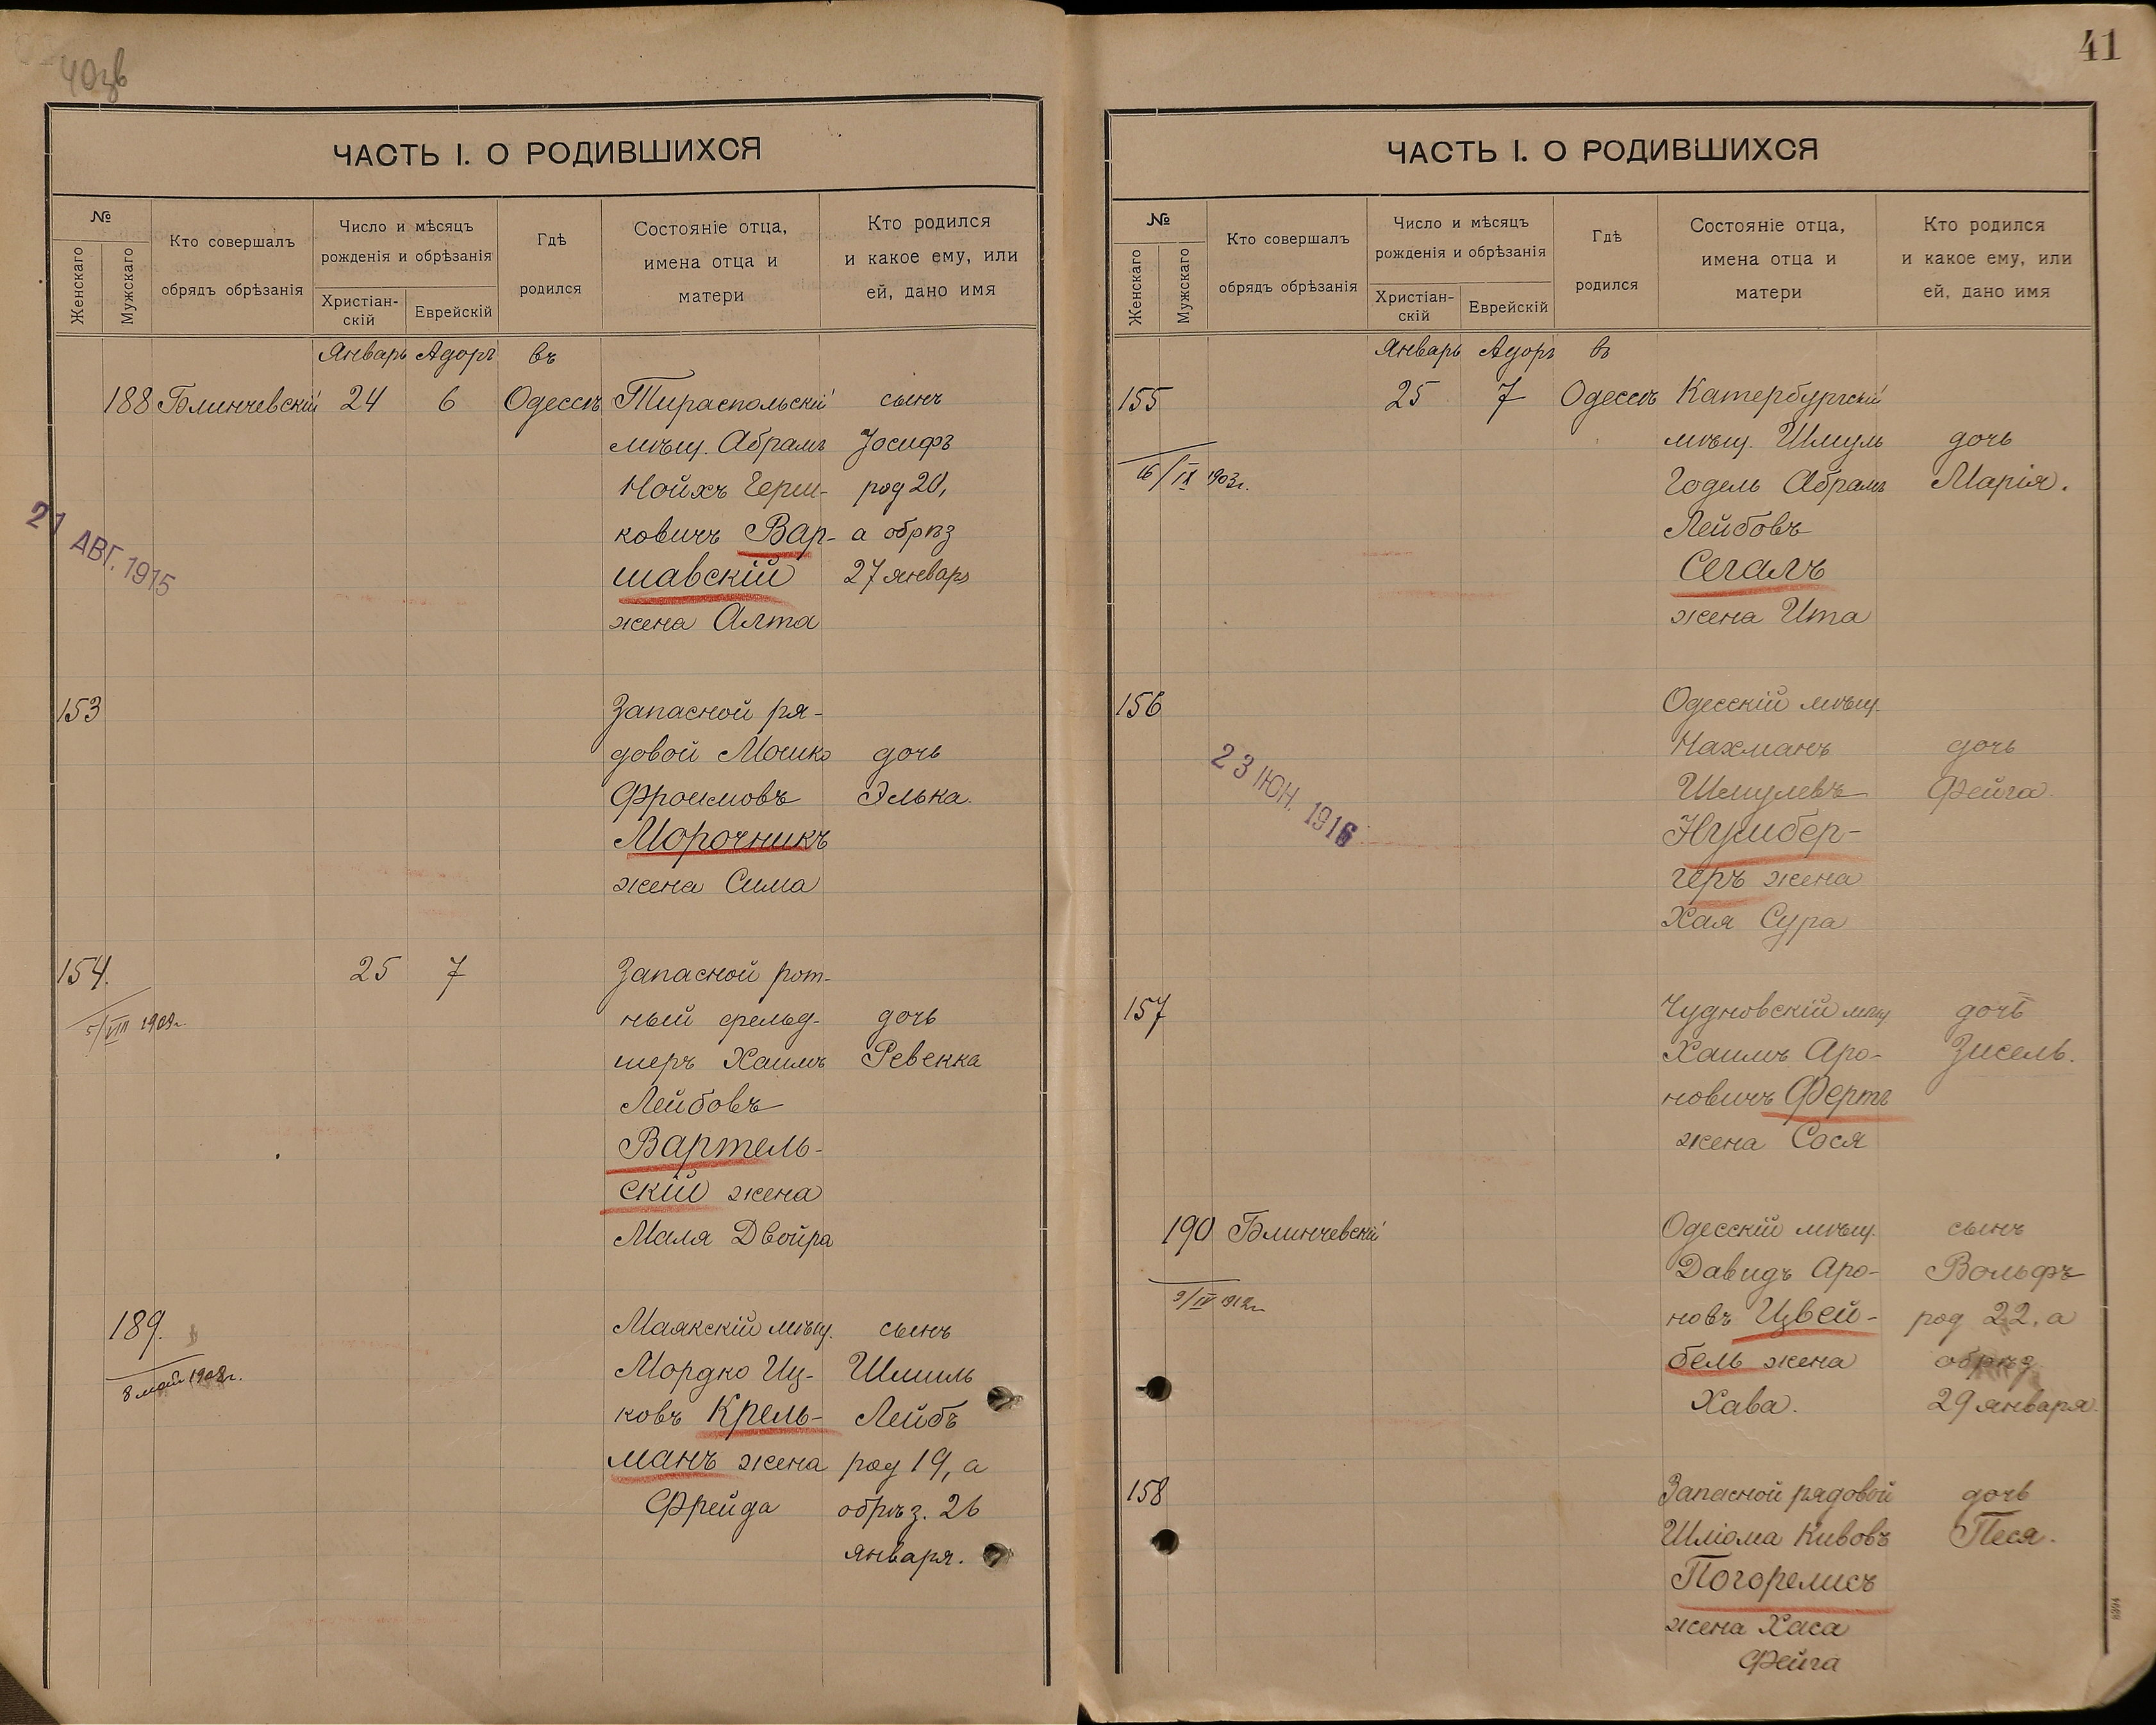 40зв
ЧАСТЬ I. О РОДИВШИХСЯ
№
Женскаго
Мужскаго
Кто совершалъ
обрядъ обрѣзанія
Число и мѣсяцъ
рожденія и обрѣзанія
Христіан-
скій
Еврейскій
Гдѣ
родился
Состояніе отца,
имена отца и
матери
Кто родился
и какое ему, или
ей, дано имя
Январь Адоръ въ
188 Блинчевскій 24 6 Одессѣ Тираспольскій сынъ
мѣщ. Абрамъ Іосифъ
Нойхъ Герш- род 20,
ковичъ Вар- а обрѣз
шавскій 27 январь
21 АВГ. 1915
жена Алта
153 Запасной ря-
довой Мошко дочь
Фроимовъ Элька.
Морочникъ
жена Сима
154. 25 7 Запасной рот-
5/VIII 1909г. ный фельд- дочь
шеръ Хаимъ Ревекка
Лейбовъ
Вартель-
скій жена
Маля Двойра
189. Маякскій мѣщ. сынъ
8 май 1908г. Мордко Иц- Шмиль
ковъ Крель- Лейбъ
манъ жена род 19, а
Фрейда обрѣз. 26
января.
41
ЧАСТЬ I. О РОДИВШИХСЯ
№
Женскаго
Мужскаго
Кто совершалъ
обрядъ обрѣзанія
Число и мѣсяцъ
рожденія и обрѣзанія
Христіан-
скій
Еврейскій
Гдѣ
родился
Состояніе отца,
имена отца и
матери
Кто родился
и какое ему, или
ей, дано имя
Январь Адоръ въ
155 25 7 Одессѣ Катербургскій
мѣщ. Шмуль дочь
16/IX 1903г. Годель Абрамъ Марія.
Лейбовъ
Сегалъ
жена Ита
156 Одесскій мѣщ.
Нахманъ дочь
23 ІЮН. 1916
Шмулевъ Фейга.
Нумбер-
геръ жена
Хая Сура
157 Чудновскій мѣщ дочь
Хаимъ Аро- Зисель.
новичъ Фертъ
жена Сося
190 Блинчевскій Одесскій мѣщ. сынъ
Давидъ Аро- Вольфъ
9/IV 1912г. новъ Цвей- род 22, а
бель жена обрѣз
Хава. 29 января.
158 Запасной рядовой дочь
Шліома Кивовъ Песя.
Погорелисъ
жена Хася
Фейга